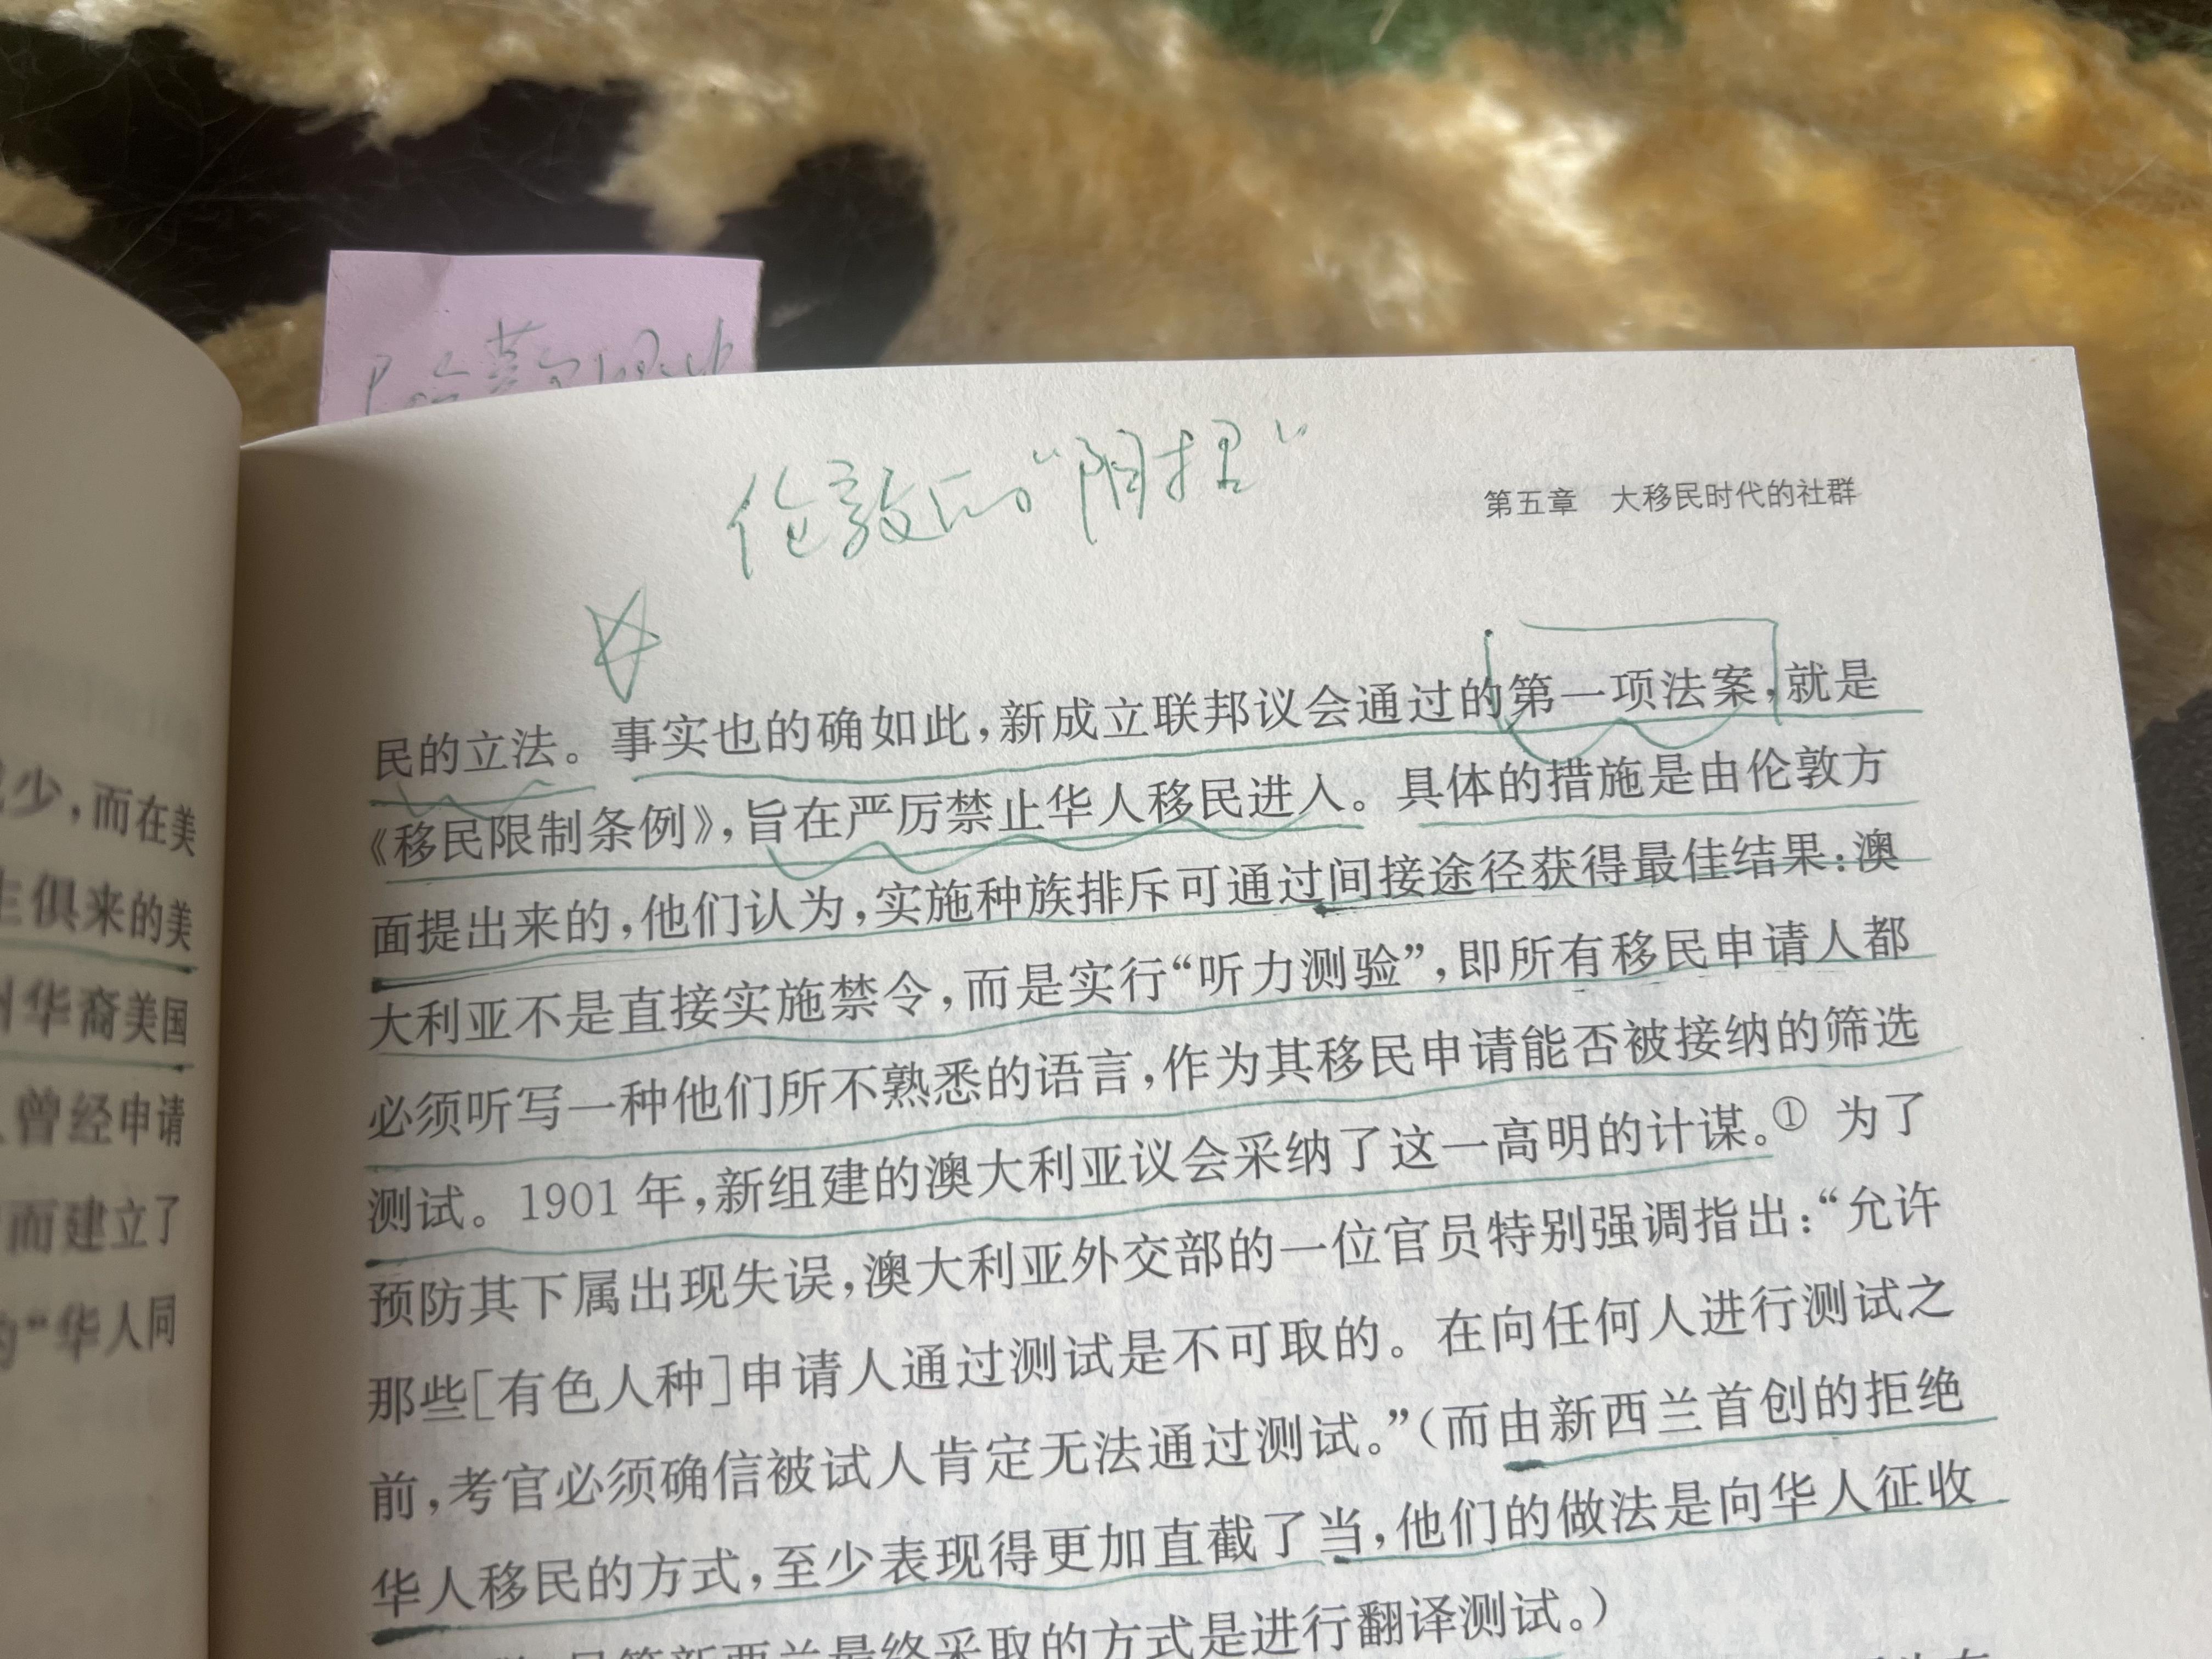 伦敦的“阴招”
第五章 大移民时代的社群
民的立法。事实也的确如此，新成立联邦议会通过的第一项法案，就是
《移民限制条例》，旨在严厉禁止华人移民进入。具体的措施是由伦敦方
面提出来的，他们认为，实施种族排斥可通过间接途径获得最佳结果：澳
大利亚不是直接实施禁令，而是实行“听力测验”，即所有移民申请人都
必须听写一种他们所不熟悉的语言，作为其移民申请能否被接纳的筛选
测试。1901 年，新组建的澳大利亚议会采纳了这一高明的计谋。① 为了
预防其下属出现失误，澳大利亚外交部的一位官员特别强调指出：“允许
那些[有色人种]申请人通过测试是不可取的。在向任何人进行测试之
前，考官必须确信被试人肯定无法通过测试。”（而由新西兰首创的拒绝
华人移民的方式，至少表现得更加直截了当，他们的做法是向华人征收
新西兰最终采取的方式是进行翻译测试。）
少，而在美
生俱来的美
华裔美国
曾经申请
而建立了
“华人同